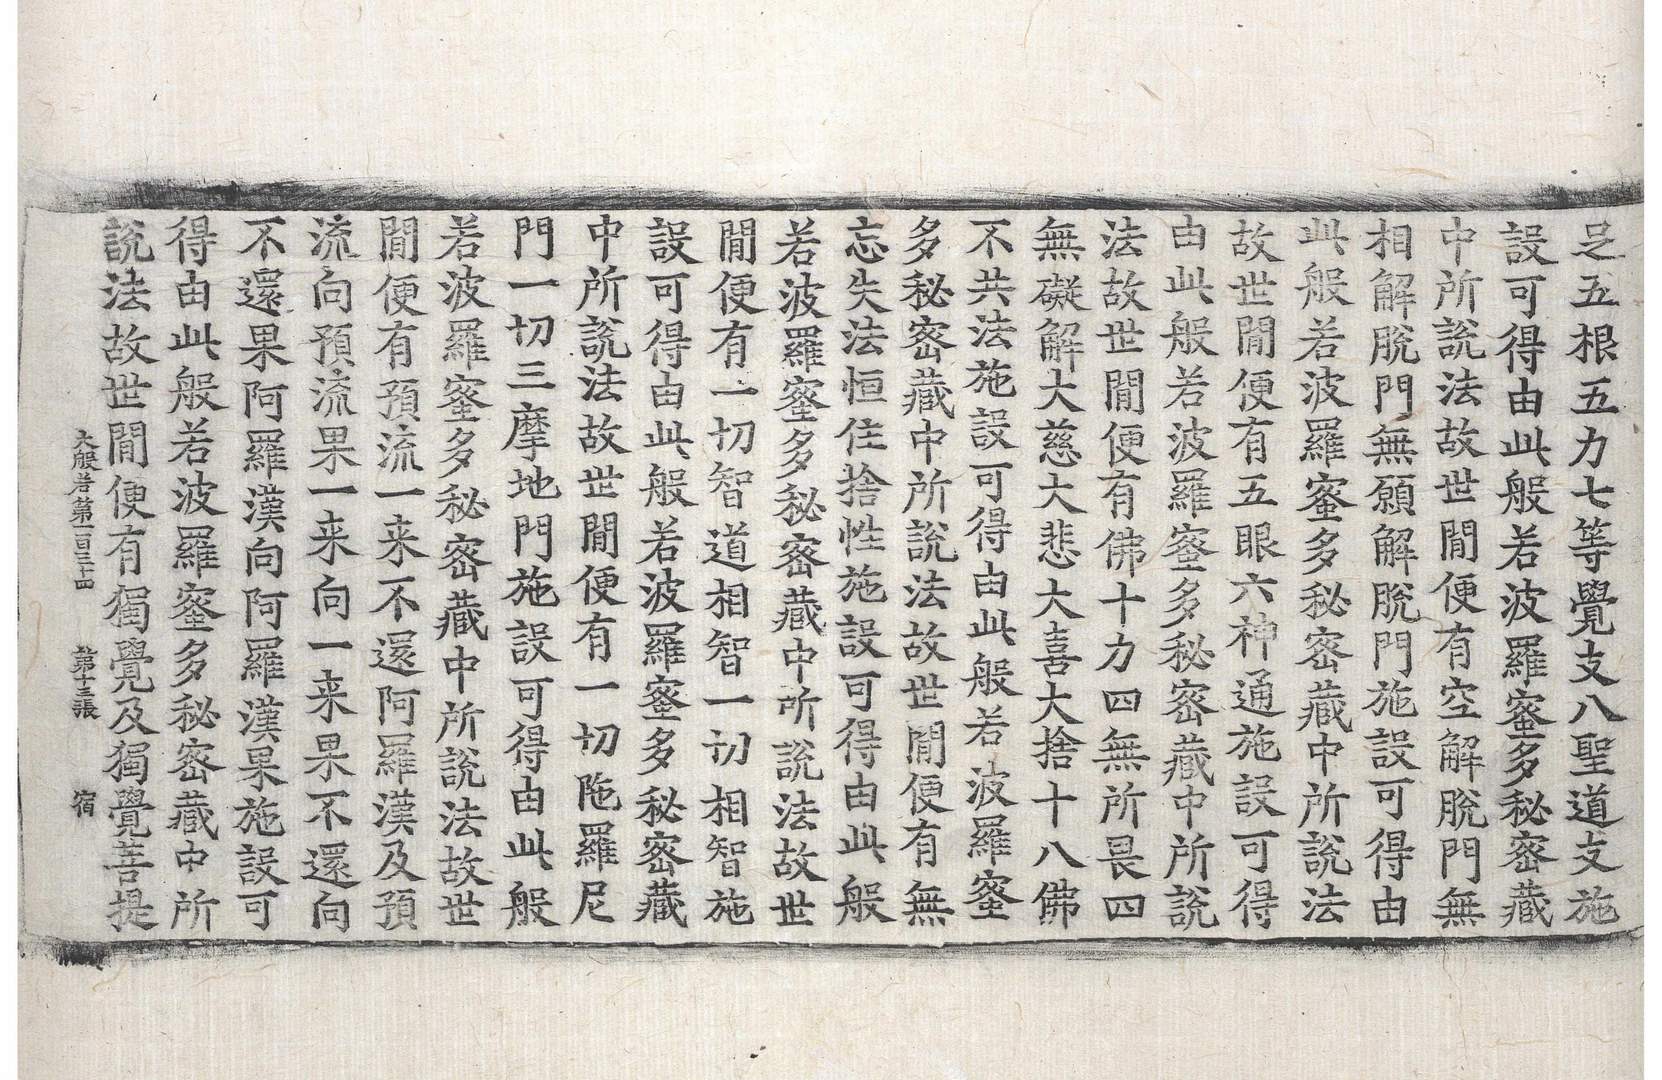 足五根五力七等覺支八聖道支施
設可得由此般若波羅蜜多秘密藏
中所說法故世閒便有空解脫門無
相解脫門無願解脫門施設可得由
此般若波羅蜜多秘密藏中所說法
故世閒便有五眼六神通施設可得
由此般若波羅蜜多秘密藏中所說
法故世閒便有佛十力四無所畏四
無礙解大慈大悲大喜大捨十八佛
不共法施設可得由此般若波羅蜜
多秘密藏中所說法故世閒便有無
忘失法恒住捨性施設可得由此般
若波羅蜜多秘密藏中所說法故世
閒便有一切智道相智一切相智施
設可得由此般若波羅蜜多秘密藏
中所說法故世閒便有一切陁羅尼
門一切三摩地門施設可得由此般
若波羅蜜多秘密藏中所說法故世
閒便有預流一来不還阿羅漢及預
流向預流果一来向一来果不還向
不還果阿羅漢向阿羅漢果施設可
得由此般若波羅蜜多秘密藏中所
說法故世閒便有獨覺及獨覺菩提
大般若第一百三十四 第十三張 宿